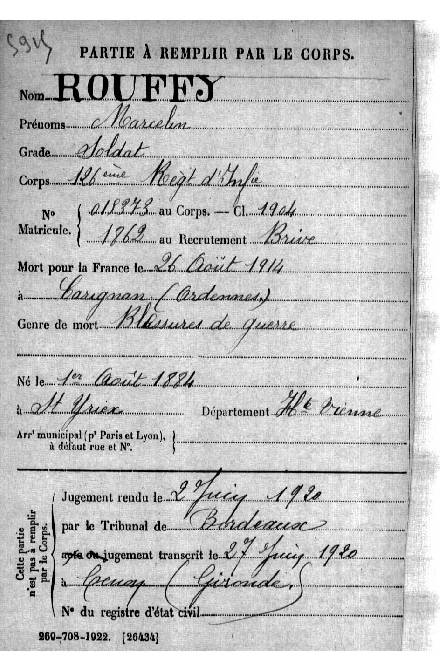 5915
PARTIE À REMPLIR PAR LE CORPS.
Nom ROUFFY
Prénoms Marcelin
Grade Soldat
Corps 126ème Régt d'Infie
No Matricule. 018273 au Corps. — Cl. 1904
1762 au Recrutement Brive
Mort pour la France le 26 Août 1914
à Carignan (Ardennes)
Genre de mort Blessures de guerre
Né le 1er Août 1884
à St Yriex Département Hte Vienne
Arrt municipal (pr Paris et Lyon), à défaut rue et No.
Cette partie n'est pas à remplir par le Corps.
Jugement rendu le 2 Juin 1920
par le Tribunal de Bordeaux
acte ou jugement transcrit le 27 Juin 1920
à Cenon (Gironde)
No du registre d'état civil
260-708-1922. [26434]